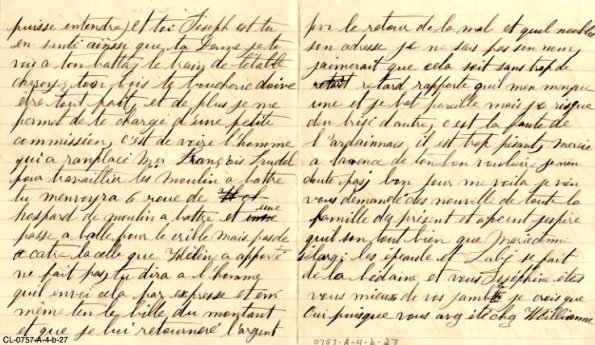 puisse entendre, et toi Joseph est tu
en santé ainsi que ta Dame je te
voi a ton battai le train de létable
chevaux tout bjis ta boucherie doive
etre tout prit, et de plus je me
permet de te chargé d'une petite
commission, c'est de voire l'homme
qui a ranplacé Mr. François Trudel
pour travaillier les moulin a battre
tu menvoyra 6 roue de
hospard de moulin a battre et une
passe a balle pour le crible mais pas de
catre la celle que Hélèn a apporé
ne fait pas, tu dira a l'homme
quil envoi cela par expresse et em
meme ten le bille du montant
et que je lui retournere l'argent
CL-0757-A-4-b-27
par le retour de la mal et quil noublie
son adresse je ne sais pas son nom,
jaimerait que cela soit sans trop de
retard rapporte quil men manque
une et je bat pareille mais je risque
den brisé d'autre, c'est la faute de
l'ardainnais, il est trop pisant, mercie
a lavence de ton bon vouloire je nen
doute pas, bon jour me voila je vien
vous demandé des nouvelle de toute la
famille du présent et apcent j'espire
quil son tout bien que Mariedme
élargi les epeaule et Labé se fait
de la bédaine et vous Joséphine etes
vous mieux de vos jambe je crois que
Oui puisque vous avez été chez Willianne
0757-A-4-b-27